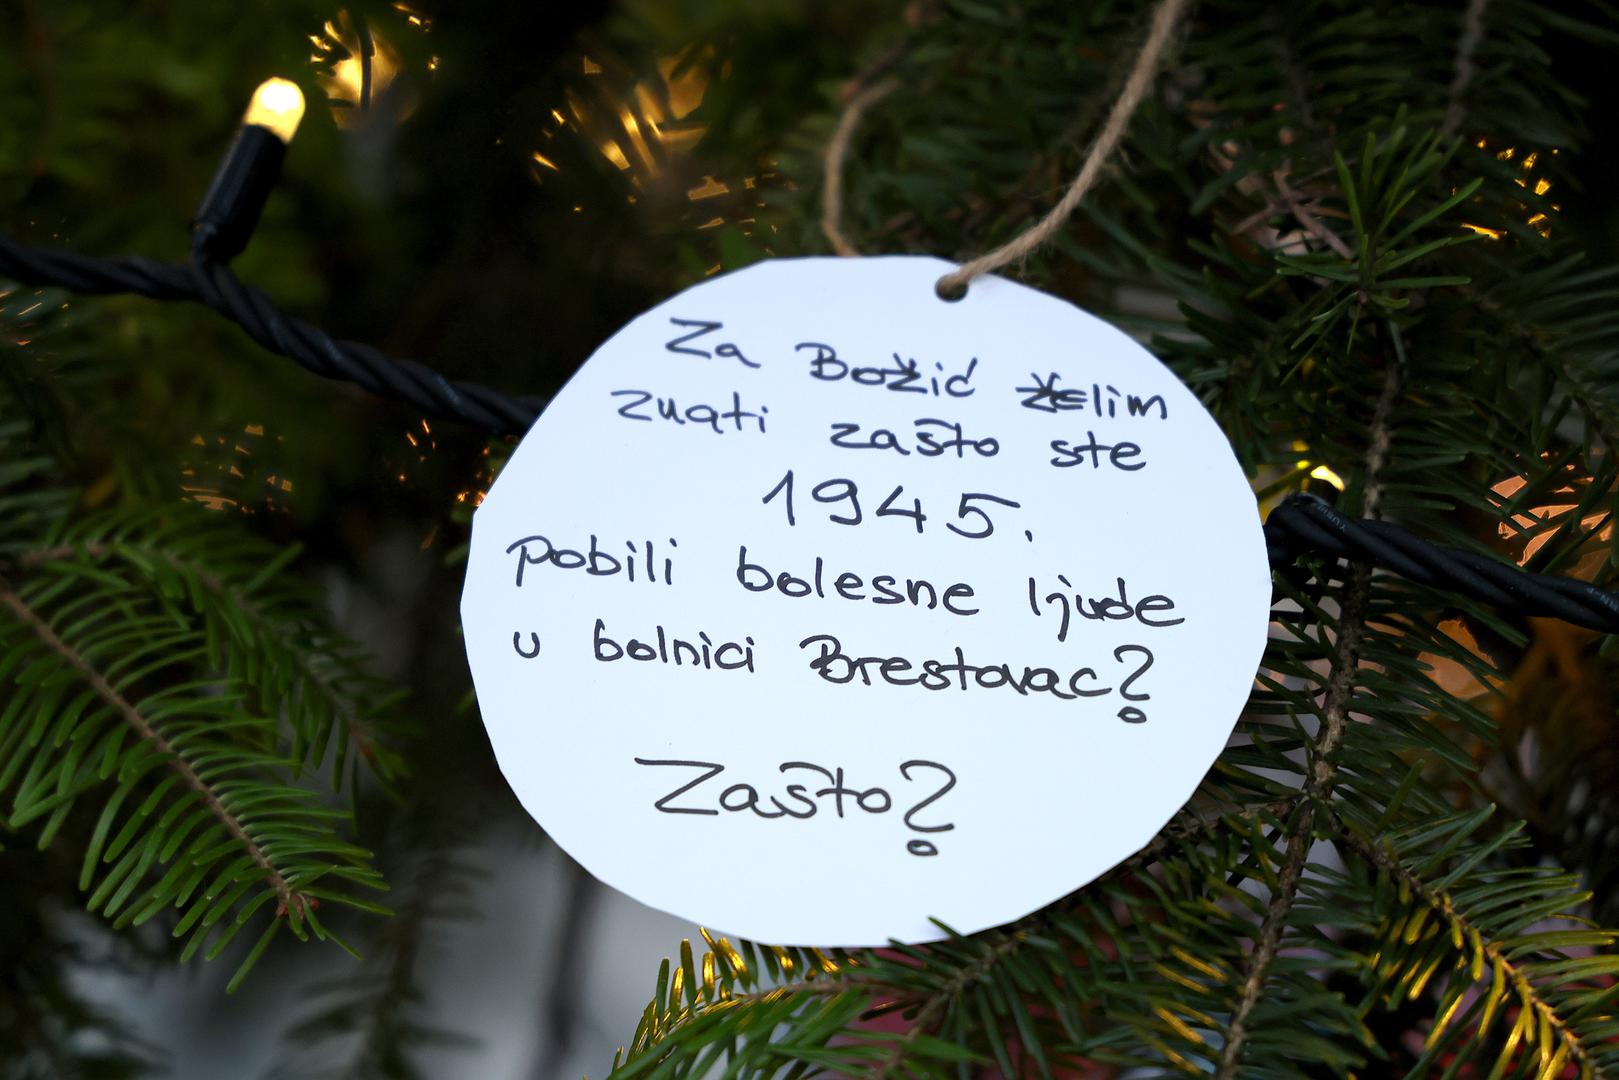 Za Božić želim
znati zašto ste
1945.
pobili bolesne ljude
u bolnici Brestovac?
Zašto?